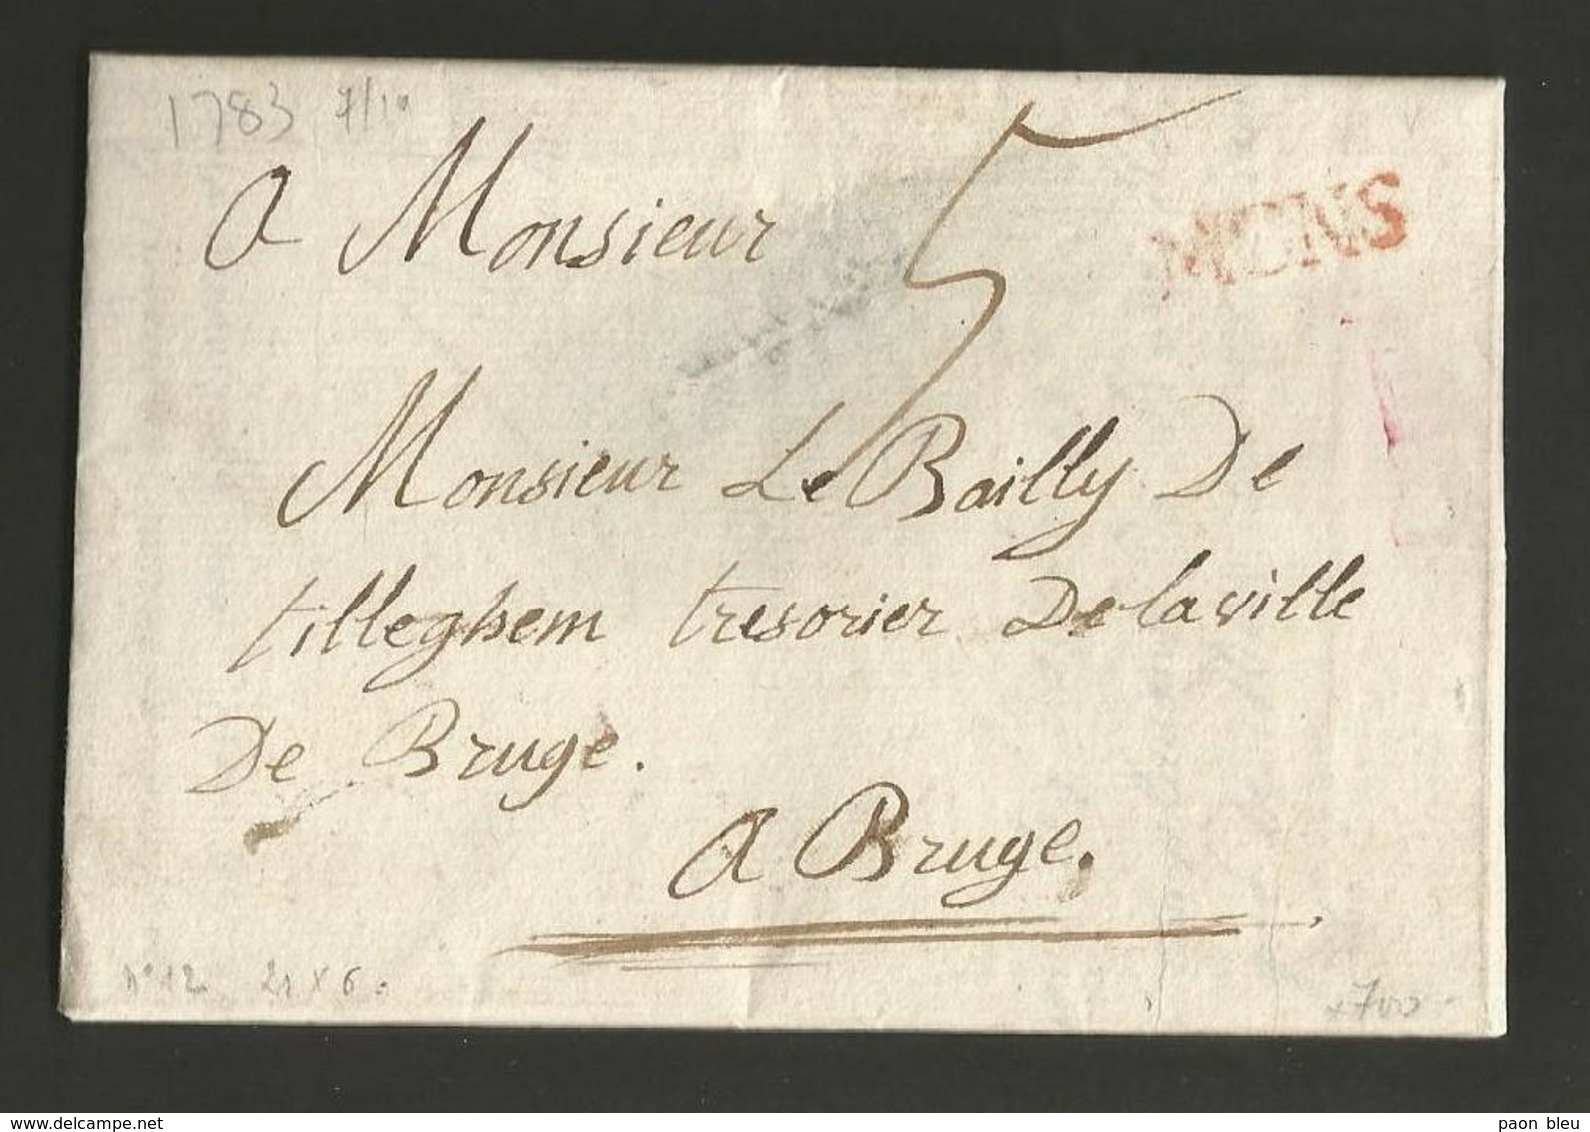 1783 7/10
5
MONS
a Monsieur
Monsieur Le Bailly De
tilleghem tresorier De la ville
De Bruge.
a Bruge.
n° 12 21 x 6
delcampe.net
paon bleu